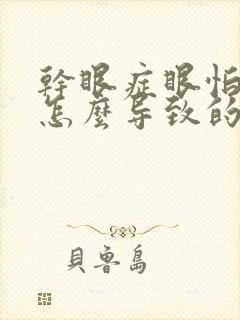 幹眼症眼怕
怎麼导致的
貝魯島